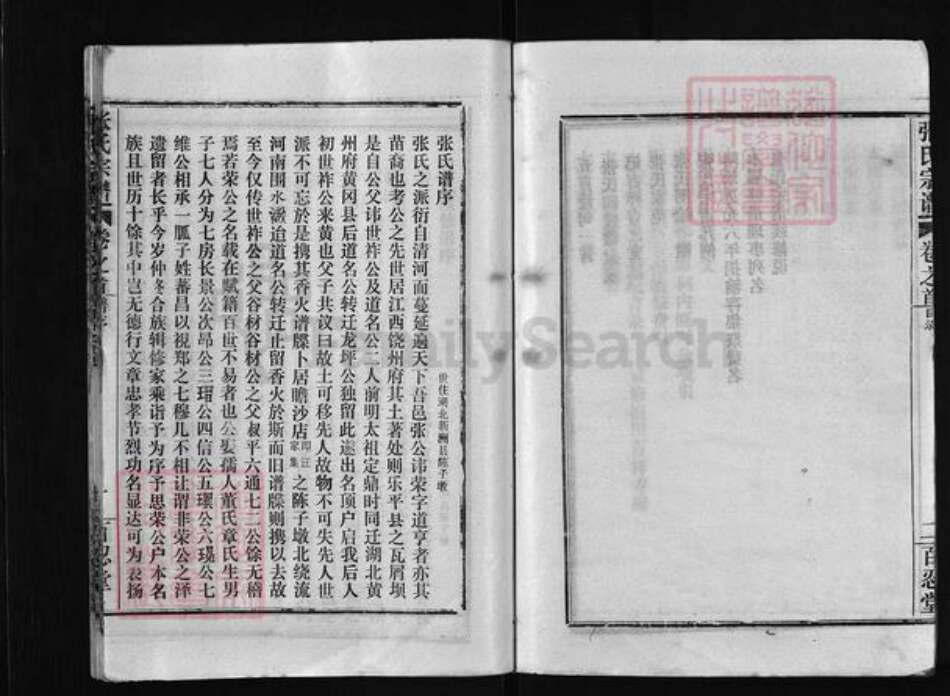 张氏宗谱
卷之首
百忍堂
张氏谱序
世住湖北新洲县陈子墩
张氏之派衍自清河而蔓延遍天下吾邑张公讳荣字道亨者亦其
苗裔也考公之先世居江西饶州府其土著处则乐平县之瓦屑坝
是自公父讳世祚公及道名公二人前明太祖定鼎时同迁湖北黄
州府黄冈县后道名公转迁龙坪公独留此遂出名顶户启我后人
初世祚公来黄也父子共议曰故土可移先人故物不可失先人世
派不可忘於是携其香火谱牒卜居瞻沙店即汪家集之陈子墩北绕流
河南围水濲迨道名公转迁止留香火於斯而旧谱牒则携以去故
至今仅传世祚公之父谷材谷材公之父叔平六通七二公馀无稽
焉若荣公之名载在赋籍百世不易者也公娶孺人董氏章氏生男
子七人分为七房长景公次昂公三瑁公四信公五璟公六瑅公七
维公相承一胍子姓蕃昌以视郑之七穆几不相让谓非荣公之泽
遗留者长乎今岁仲冬合族辑修家乘诣予为序予思荣公户本名
族且世历十馀其中岂无德行文章忠孝节烈功名显达可为表扬
张氏宗谱
卷之首
谱序
百忍堂
FamilySearch